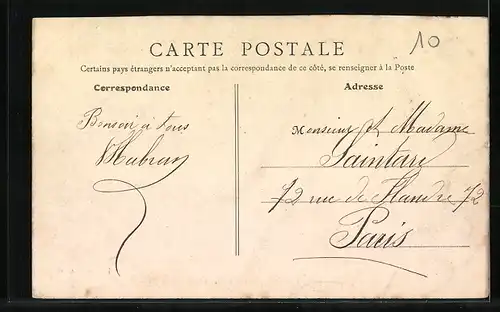 CARTE POSTALE
10
Certains pays étrangers n'acceptant pas la correspondance de ce côté, se renseigner à la Poste
Correspondance
Bonsoir à tous
Adresse
Monsieur et Madame
72 rue de Flandre 72
Paris